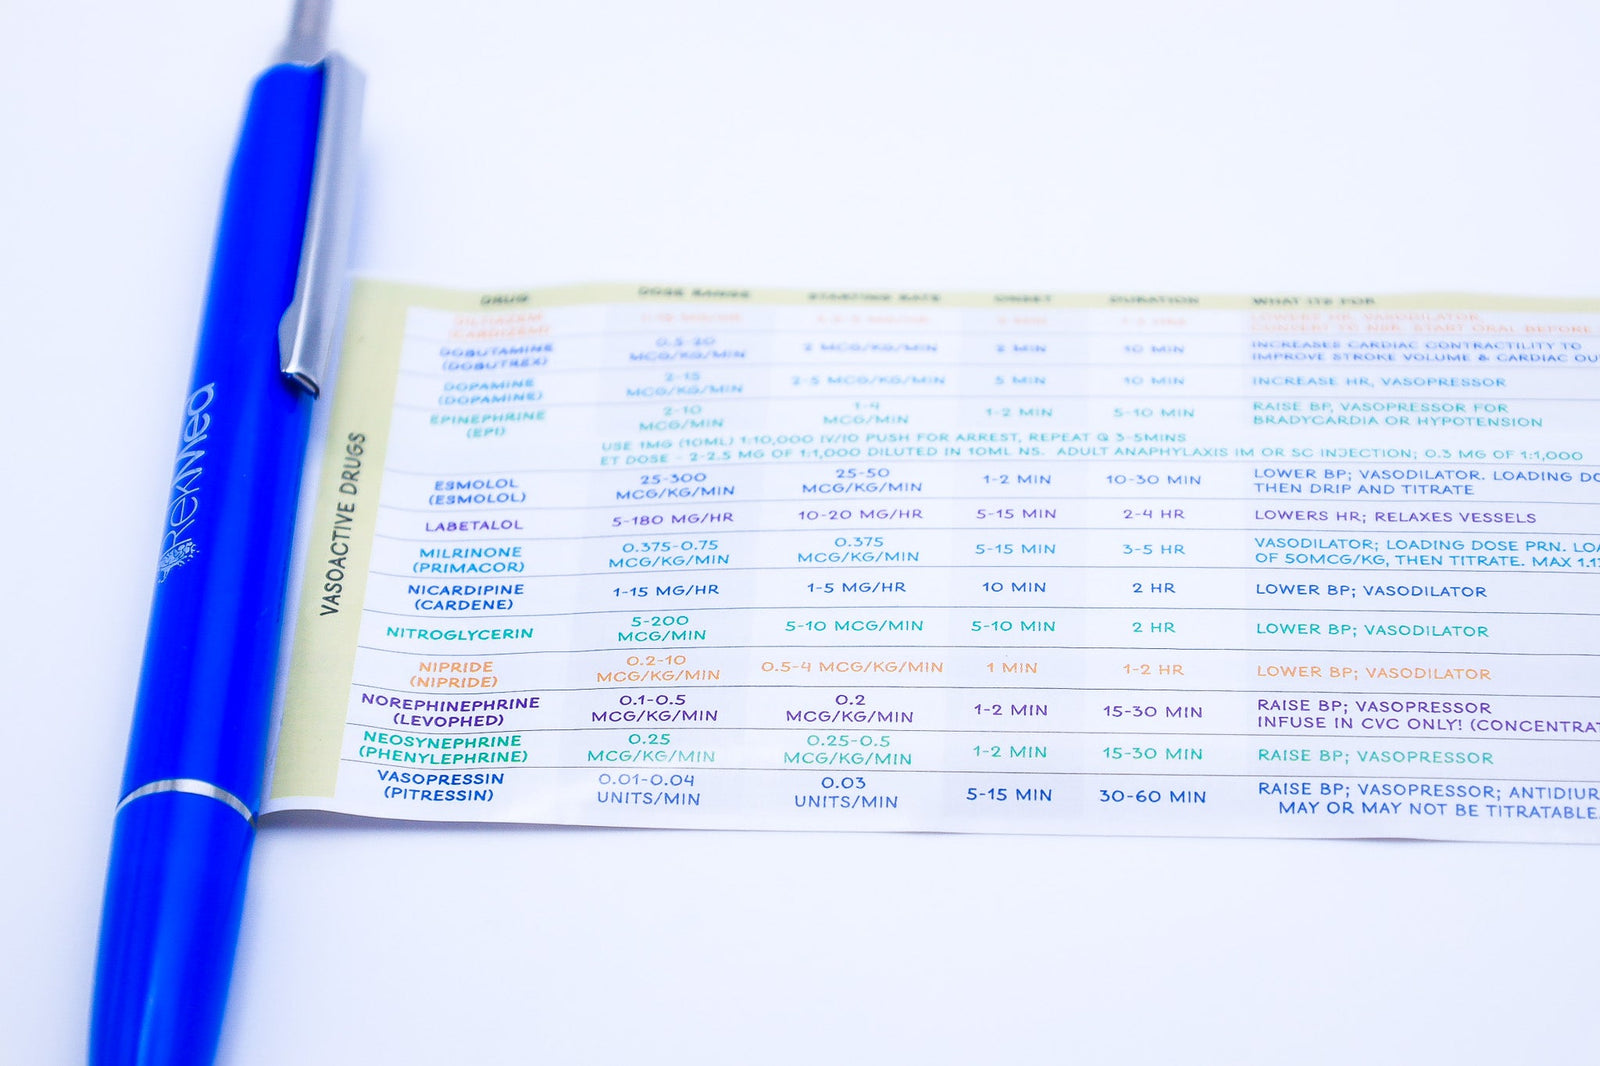 RekMed
VASOACTIVE DRUGS
DRUG DOSE RANGE STARTING RATE ONSET DURATION WHAT ITS FOR
DILTIAZEM LOWERS HR, VASODILATOR.
(CARDIZEM) CONVERT TO NSR. START ORAL BEFORE
DOBUTAMINE 0.5-20 2 MCG/KG/MIN 2 MIN 10 MIN INCREASES CARDIAC CONTRACTILITY TO
(DOBUTREX) MCG/KG/MIN IMPROVE STROKE VOLUME & CARDIAC OU
DOPAMINE 2-15 2-5 MCG/KG/MIN 5 MIN 10 MIN INCREASE HR, VASOPRESSOR
(DOPAMINE) MCG/KG/MIN
EPINEPHRINE 2-10 1-4 1-2 MIN 5-10 MIN RAISE BP, VASOPRESSOR FOR
(EPI) MCG/MIN MCG/MIN BRADYCARDIA OR HYPOTENSION
USE 1MG (10ML) 1:10,000 IV/IO PUSH FOR ARREST, REPEAT Q 3-5MINS
ET DOSE - 2-2.5 MG OF 1:1,000 DILUTED IN 10ML NS. ADULT ANAPHYLAXIS IM OR SC INJECTION; 0.3 MG OF 1:1,000
ESMOLOL 25-300 25-50 1-2 MIN 10-30 MIN LOWER BP; VASODILATOR. LOADING DO
(ESMOLOL) MCG/KG/MIN MCG/KG/MIN THEN DRIP AND TITRATE
LABETALOL 5-180 MG/HR 10-20 MG/HR 5-15 MIN 2-4 HR LOWERS HR; RELAXES VESSELS
MILRINONE 0.375-0.75 0.375 5-15 MIN 3-5 HR VASODILATOR; LOADING DOSE PRN. LOA
(PRIMACOR) MCG/KG/MIN MCG/KG/MIN OF 50MCG/KG, THEN TITRATE. MAX 1.1
NICARDIPINE 1-15 MG/HR 1-5 MG/HR 10 MIN 2 HR LOWER BP; VASODILATOR
(CARDENE)
NITROGLYCERIN 5-200 5-10 MCG/MIN 5-10 MIN 2 HR LOWER BP; VASODILATOR
MCG/MIN
NIPRIDE 0.2-10 0.5-4 MCG/KG/MIN 1 MIN 1-2 HR LOWER BP; VASODILATOR
(NIPRIDE) MCG/KG/MIN
NOREPHINEPHRINE 0.1-0.5 0.2 1-2 MIN 15-30 MIN RAISE BP; VASOPRESSOR
(LEVOPHED) MCG/KG/MIN MCG/KG/MIN INFUSE IN CVC ONLY! (CONCENTRAT
NEOSYNEPHRINE 0.25 0.25-0.5 1-2 MIN 15-30 MIN RAISE BP; VASOPRESSOR
(PHENYLEPHRINE) MCG/KG/MIN MCG/KG/MIN
VASOPRESSIN 0.01-0.04 0.03 5-15 MIN 30-60 MIN RAISE BP; VASOPRESSOR; ANTIDIUR
(PITRESSIN) UNITS/MIN UNITS/MIN MAY OR MAY NOT BE TITRATABLE.